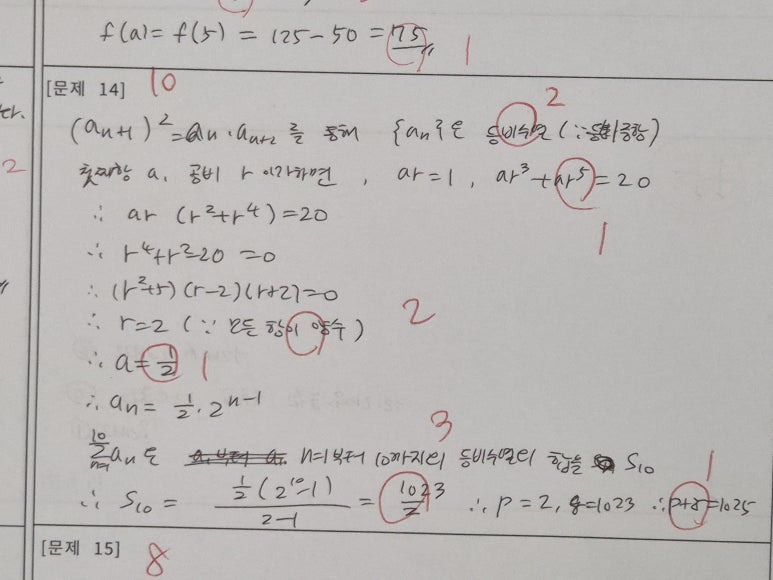 f(a) = f(5) = 125 - 50 = 75 1
[문제 14] 10
2
(aₙ₊₁)² = aₙ · aₙ₊₂ 를 통해 {aₙ}은 등비수열 (∵등비중항)
2 첫째항 a, 공비 r 이라하면, ar = 1, ar³ + ar⁵ = 20
1
∴ ar (r² + r⁴) = 20
∴ r⁴ + r² - 20 = 0
∴ (r² + 5)(r - 2)(r + 2) = 0
∴ r = 2 (∵ 모든 항이 양수) 2
∴ a = 1/2 1
∴ aₙ = 1/2 · 2ⁿ⁻¹
3
∑ₙ₌₁¹⁰ aₙ 은 n=1부터 10까지의 등비수열의 합을 S₁₀ 1
∴ S₁₀ = 1/2 (2¹⁰ - 1) / 2 - 1 = 1023/2 ∴ p = 2, q = 1023 ∴ p + q = 1025
[문제 15] 8